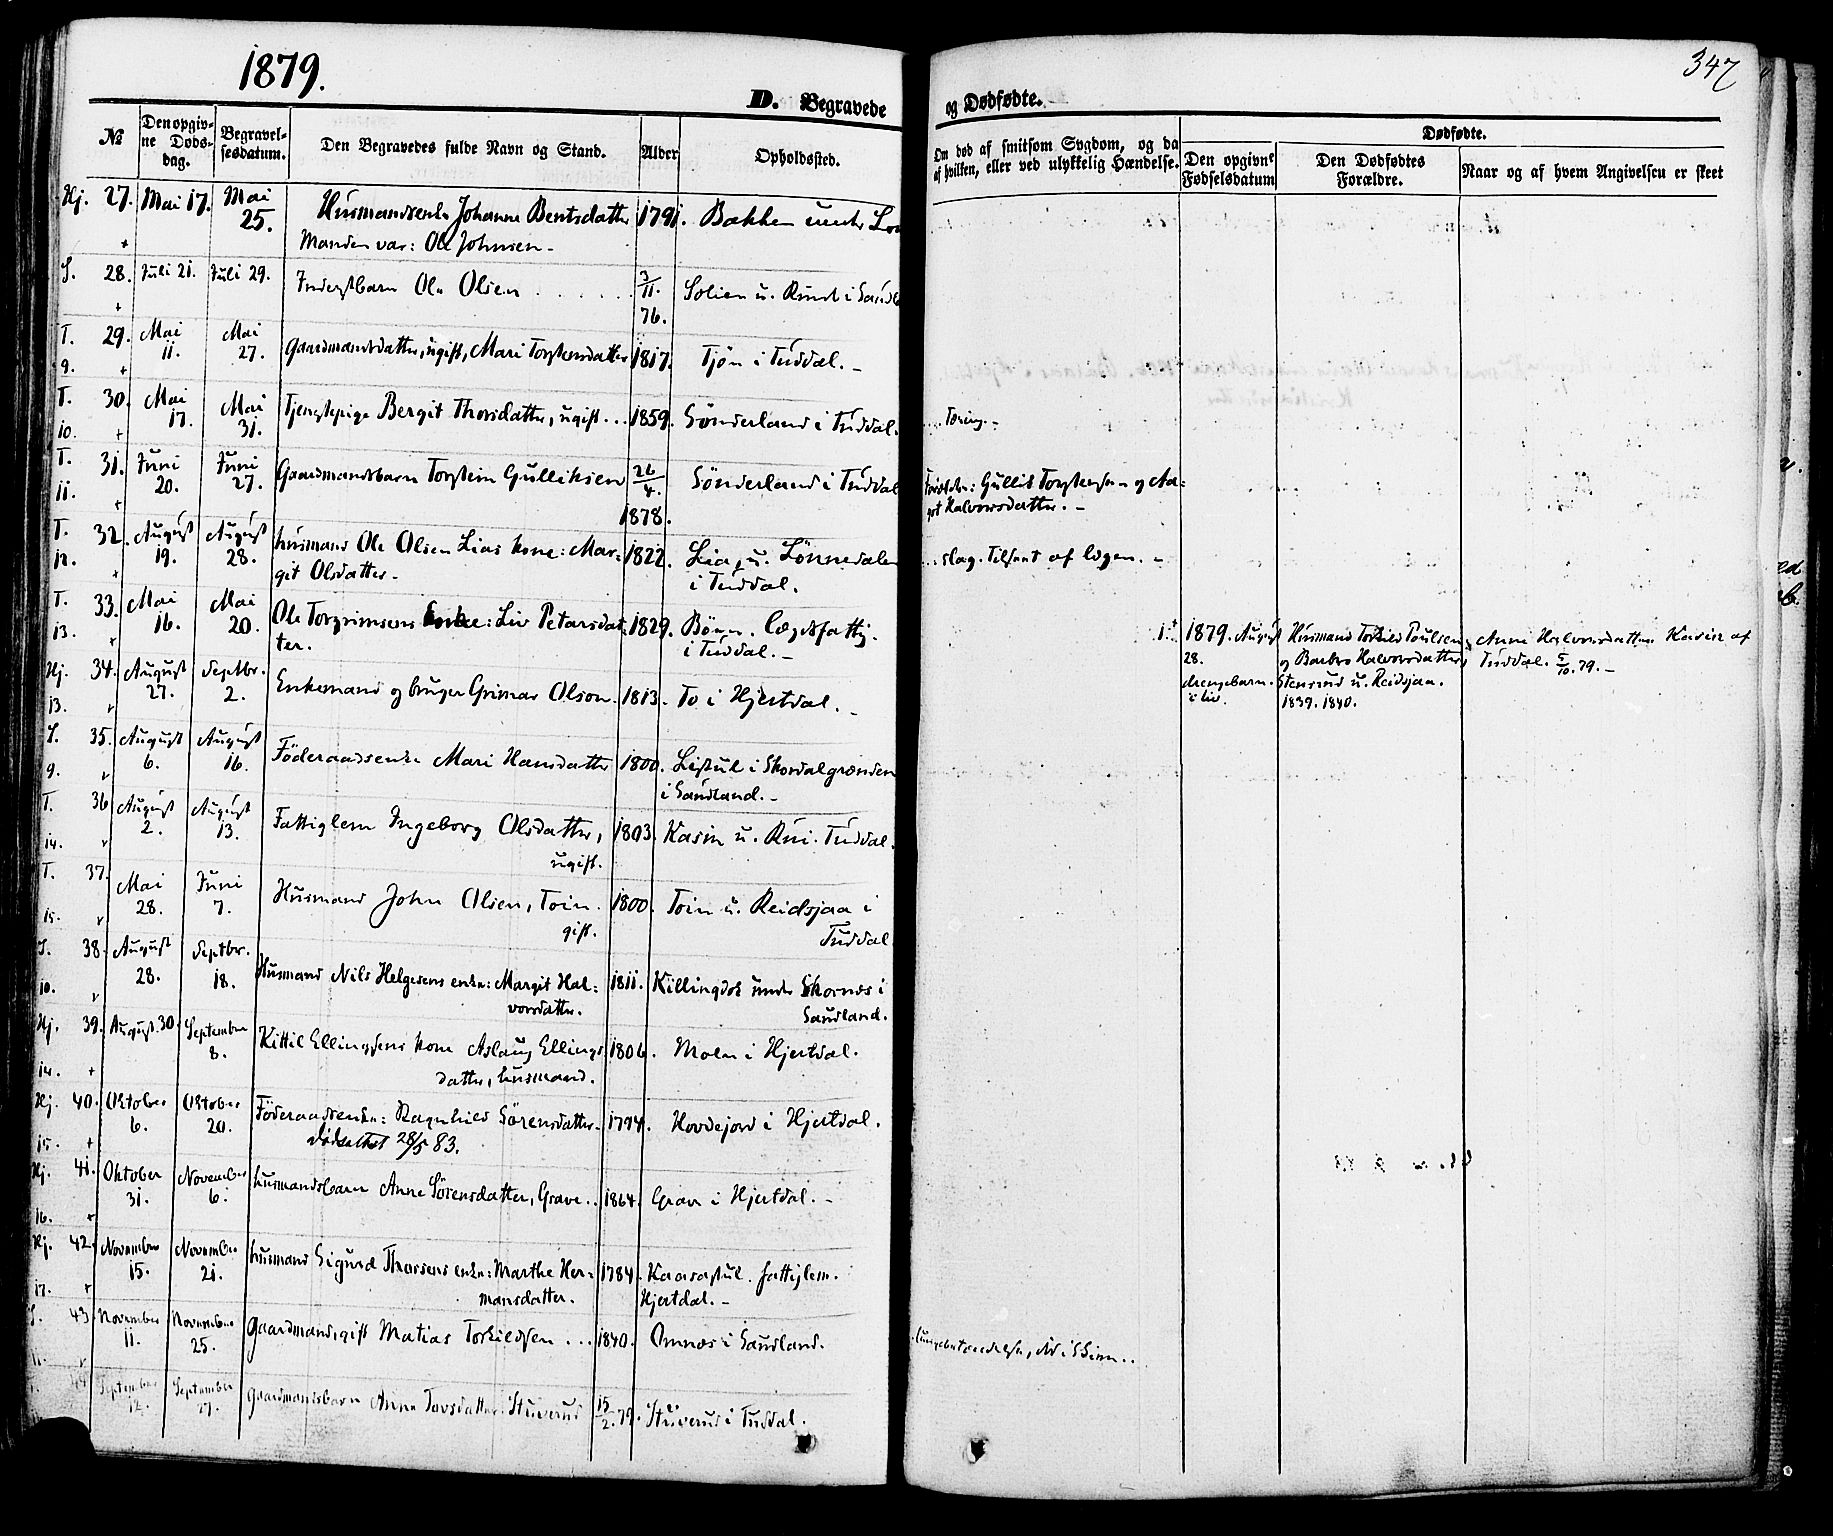 1879.
D. Begravede
№
Den opgiv-
ne Døds-
dag.
Begravel-
sesdatum.
Den Begravedes fulde Navn og Stand.
Alder
Opholdssted.
Hj. 27. Mai 17. Mai 25. Husmandsenke Johanne Bentsdatter 1791. Bakken under
Manden var: Ole Johnsen -
S. 28. Juli 21. Juli 29. Inderstbarn Ole Olsen . . . . . . 3/11. 76. Solien u. Rund i Saudl
T. 29. Mai 11. Mai 27. Gaardmandsdatter, ugift, Mari Torstensdatter 1817. Tjøn i Tuddal. -
9.
T. 30. Mai 17. Mai 31. Tjenestepige Bergit Thorsdatter, ugift. . . 1859. Sønderland i Tuddal.
10.
T. 31. Juni 20. Juni 27. Gaardmandsbarn Torstein Gulliksen 26/4. 1878. Sønderland i Tuddal
11.
T. 32. August 19. August 28. husmand Ole Olsen Lias kone: Mar- 1822. Lia, u. Lønnedalen
12. git Olsdatter - i Tuddal.
T. 33. Mai 16. Mai 20. Ole Torgrimsens Enke: Liv Petersdat- 1829. Bøen. Lægdsfattig.
13. ter. i Tuddal. -
Hj. 34. August 27. Septbr. 2. Enkemand og bruger Grimar Olson. 1813. To i Hjertdal. -
13.
S. 35. August 6. August 16. Föderaadsenke Mari Hansdatter 1800. Listul i Skordalgrænden
9. i Saudland. -
T. 36 August 2. August 13. Fattiglem Ingeborg Olsdatter, 1803. Kasin u. Rui. Tuddal.
14. ugift.
T. 37. Mai 28. Juni 7. Husmand John Olsen, Toin. 1800. Toin u. Reidsjaa i
15. gift. Tuddal.
S. 38. August 28. Septbr. 18. Husmand Nils Helgesens enke: Margit Hal- 1811. Killingdok under Skornæs i
10. vorsdatter. Saudland.
Hj. 39. August 30. September 8. Kittil Ellingsens kone Aslaug Ellings 1806. Moen i Hjertdal.
14. datter, husmand.
Hj. 40. Oktober 6. Oktober 20. Föderaadsenke: Ragnhild Sörensdatter. 1794. Hovdejord i Hjertdal.
15. dødsattest 28/5 83.
Hj. 41. Oktober 31. November 6. husmandsbarn Anne Sörensdatter, Grave . . 1864. Grav i Hjertdal. -
16.
Hj. 42. November 15. November 21. husmand Sigurd Thorsens enke: Marthe Her- 1784. Kaasastul. fattiglem.
17. mansdatter. Hjertdal. -
S. 43. November 11. November 25. gaardmand, gift Matias Torkildsen . . . 1840. Omnæs i Saudland.
11.
44. September 12. September 27. gaardmandsbarn Anne Torsdatter Stuverud 15/2. 79. Stuverud i Tuddal.
347
og Dødfødte.
Om død af smitsom Sygdom, og da
af hvilken, eller ved ulykkelig Hændelse.
Dødfødte.
Den opgivne
Fødselsdatum
Den Dødfødtes
Forældre.
Naar og af hvem Angivelsen er skeet
Tæring. -
Forældre: Gullik Torstensen og Aa-
got Halvorsdatter. -
slag. Tilsent af lægen. -
1. 1879. August
28.
drengebarn.
i live.
Husmand Torkild Poulsen
og Barbro Halvorsdatter,
Stensrud u. Reidsjaa.
1839. 1840.
Anne Halvorsdatter Kasin af
Tuddal. 5/10. 79. -
lungebetændelse, død i Skien . .